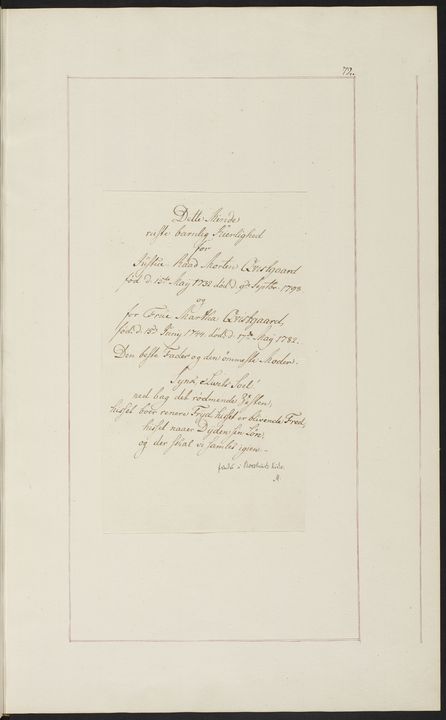 72.
Dette Minde
reiste barnlig Kierlighed
for
Justice Raad Morten Qvistgaard
fød d. 15de May 1732 død d. 9de Septbr. 1798
og
for Frue Martha Qvistgaard,
fød d. 15de Juny 1744. død d. 17de May 1782.
Den beste Fader og den ömmeste Moder.
Synk Livets Soel!
ned bag det rødmende Vesten,
hisset boer renere Fryd, hisset er blivende Fred,
hisset naaer Dyden sin Løn,
og der skal vi samles igien. -
findes i Kirke.